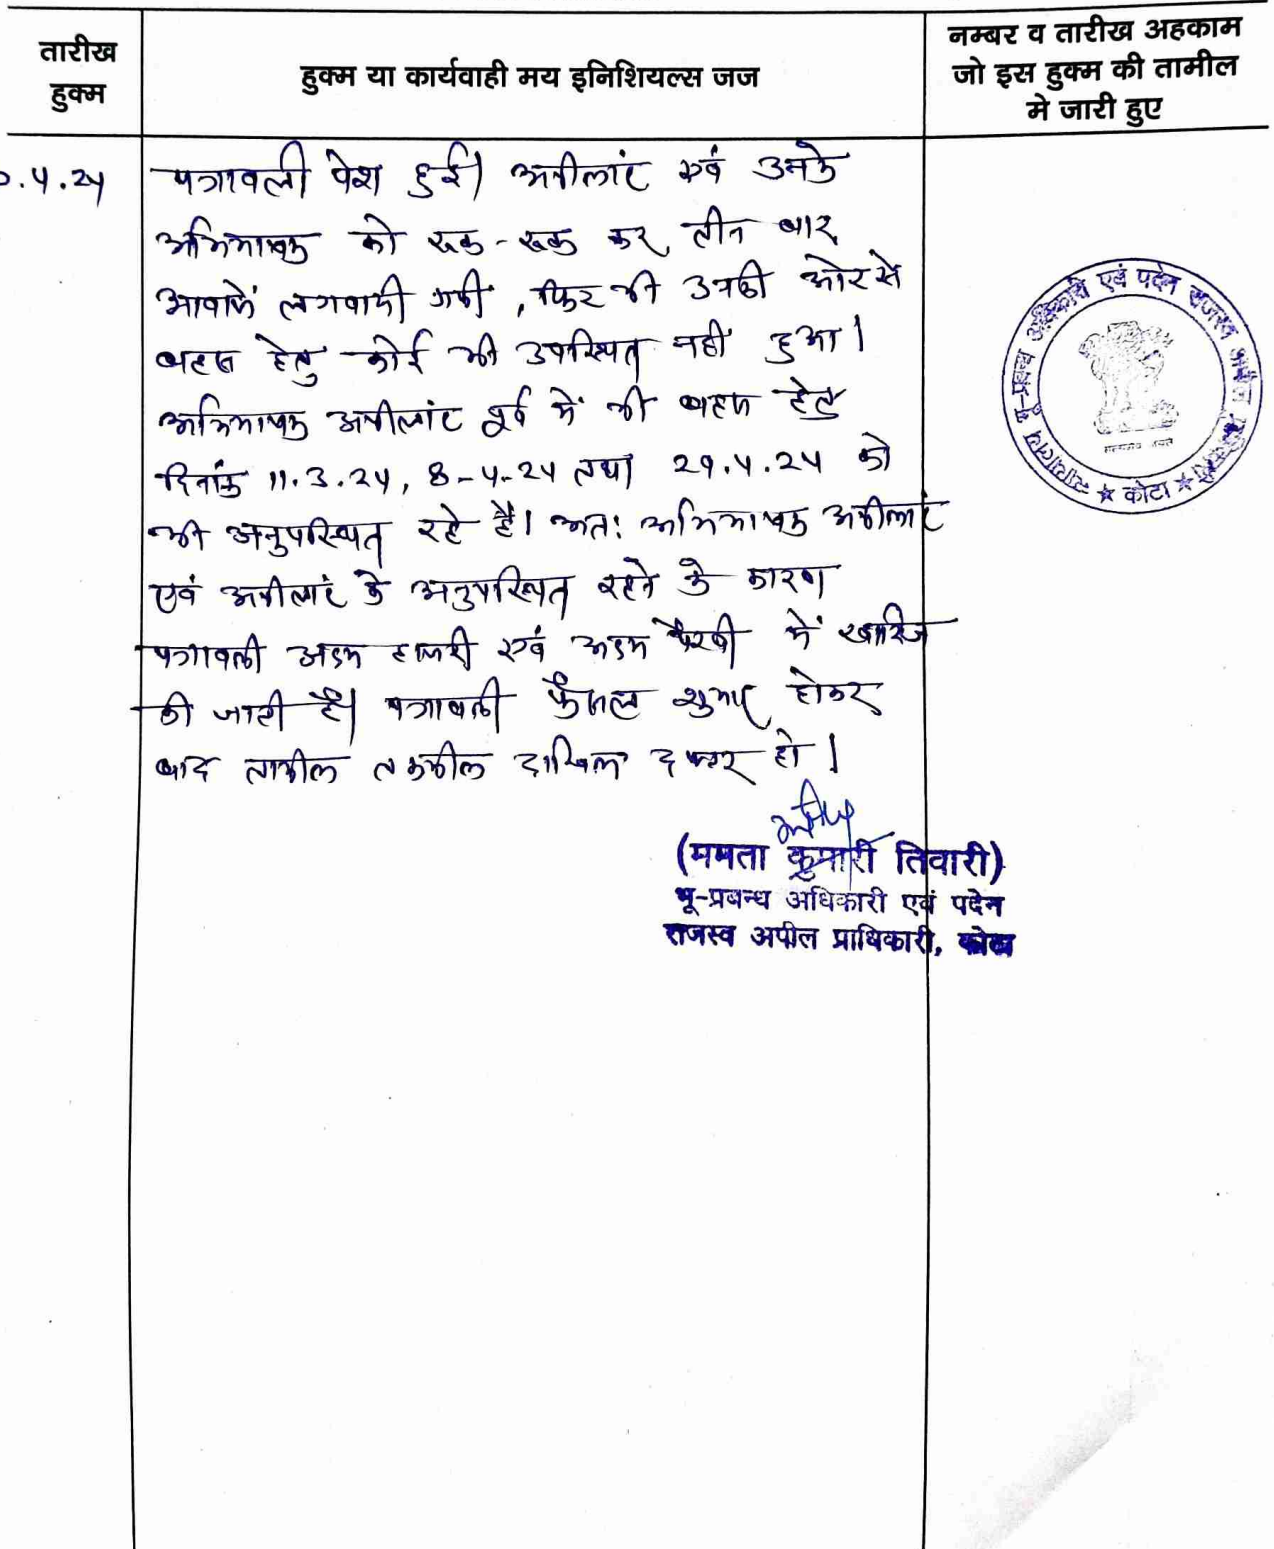 तारीख
हुक्म
हुक्म या कार्यवाही मय इनिशियल्स जज
नम्बर व तारीख अहकाम
जो इस हुक्म की तामील
मे जारी हुए
.4.24
पत्रावली पेश हुई। अपीलांट एवं उनके
अभिभाषक को रूक-रूक कर तीन बार
आवाजें लगवायी गयी, फिर भी उनकी ओर से
बहस हेतु कोई भी उपस्थित नहीं हुआ।
अभिभाषक अपीलांट पूर्व में भी बहस हेतु
दिनांक 11.3.24, 8-4-24 तथा 29.4.24 को
भी अनुपस्थित रहे है। अतः अभिभाषक अपीलांट
एवं अपीलांट के अनुपस्थित रहने के कारण
पत्रावली अदम हाजरी एवं अदम पैरवी में खारिज
की जाती है। पत्रावली फैसल शुमार होकर
बाद तामील तकमील दाखिल दफ्तर हो।
(ममता कुमारी तिवारी)
भू-प्रबन्ध अधिकारी एवं पदेन
राजस्व अपील प्राधिकारी, कोटा
न्यायालय भू-प्रबन्ध अधिकारी एवं पदेन राजस्व अपील प्राधिकारी
★ कोटा ★
सत्यमेव जयते